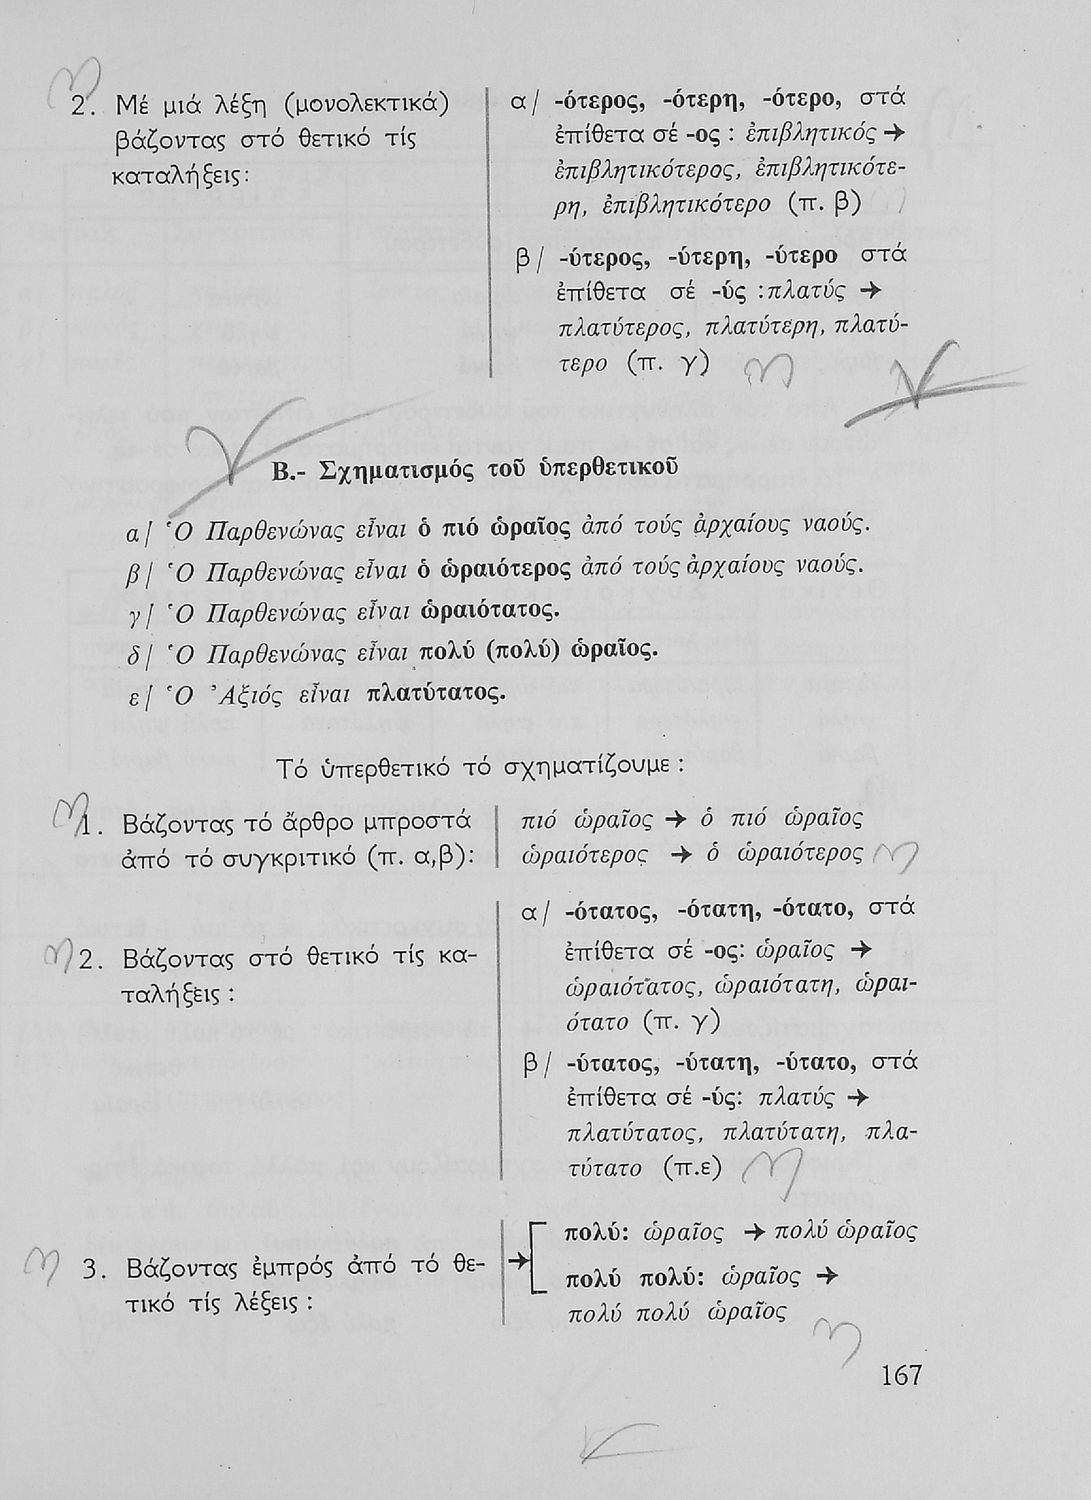 2. Μέ μιά λέξη (μονολεκτικά)
βάζοντας στό θετικό τίς
καταλήξεις:
α/ -ότερος, -ότερη, -ότερο, στά
ἐπίθετα σέ -ος : ἐπιβλητικός →
ἐπιβλητικότερος, ἐπιβλητικότε-
ρη, ἐπιβλητικότερο (π. β)
β/ -ύτερος, -ύτερη, -ύτερο στά
ἐπίθετα σέ -ύς :πλατύς →
πλατύτερος, πλατύτερη, πλατύ-
τερο (π. γ)
Β.- Σχηματισμός τοῦ ὑπερθετικοῦ
α/ Ὁ Παρθενώνας εἶναι ὁ πιό ὡραῖος ἀπό τούς ἀρχαίους ναούς.
β/ Ὁ Παρθενώνας εἶναι ὁ ὡραιότερος ἀπό τούς ἀρχαίους ναούς.
γ/ Ὁ Παρθενώνας εἶναι ὡραιότατος.
δ/ Ὁ Παρθενώνας εἶναι πολύ (πολύ) ὡραῖος.
ε/ Ὁ Ἀξιός εἶναι πλατύτατος.
Τό ὑπερθετικό τό σχηματίζουμε :
1. Βάζοντας τό ἄρθρο μπροστά
ἀπό τό συγκριτικό (π. α,β):
πιό ὡραῖος → ὁ πιό ὡραῖος
ὡραιότερος → ὁ ὡραιότερος
2. Βάζοντας στό θετικό τίς κα-
ταλήξεις :
α/ -ότατος, -ότατη, -ότατο, στά
ἐπίθετα σέ -ος: ὡραῖος →
ὡραιότατος, ὡραιότατη, ὡραι-
ότατο (π. γ)
β/ -ύτατος, -ύτατη, -ύτατο, στά
ἐπίθετα σέ -ύς: πλατύς →
πλατύτατος, πλατύτατη, πλα-
τύτατο (π.ε)
3. Βάζοντας ἐμπρός ἀπό τό θε-
τικό τίς λέξεις :
→ πολύ: ὡραῖος → πολύ ὡραῖος
πολύ πολύ: ὡραῖος →
πολύ πολύ ὡραῖος
167